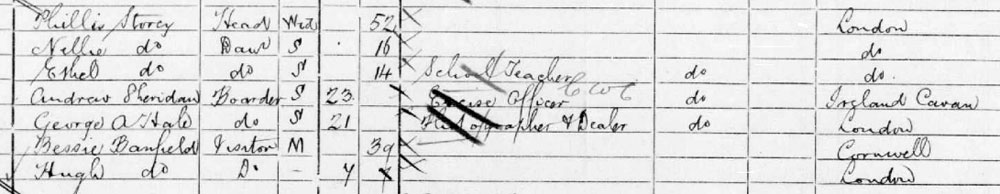 Phillis Storey Head Wid 52 London
Nellie do Daur S 16 do
Ethel do do S 14 School Teacher do do.
Andrew Sheridan Boarder S 23 Excise Officer CWC do Irgland Cavan
George A Hale do S 21 Photographer & Dealer do London
Bessie Banfield Visitor M 39 Cornwell
Hugh do Do - 7 London